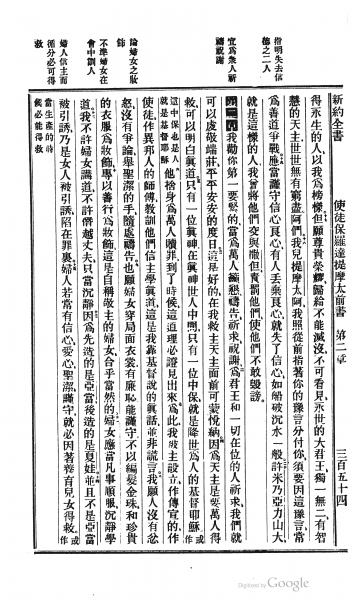 新約全書 使徒保羅達提摩太前書 第二章 三百五十四
指明失去信德之二人
得永生的人、以我爲榜樣、但願尊貴榮耀、歸給不能滅沒、不可看見、永世的大君王、獨一無二、有智
慧的天主、世世無有窮盡、阿們、我兒提摩太阿、我照從前指著你的豫言分付你、須要因這豫言、當
爲善道爭戰、應當謹守信心良心、有人丟棄良心、就失了信心、如船破沉水一般、許米乃亞力山大、
就是這樣的人、我曾將他們交與撒但責罰他們、使他們不敢毀謗、
宜爲衆人祈禱祝謝
第二章 我勸你第一要緊的、當爲萬人懇禱告、祈求祝謝、爲君王和一切在位的人祈求、我們就
可以虔敬端莊、平平安安的度日、這是好的、在我救主天主面前可蒙悅納、因爲天主是要萬人得
救、可以明白眞道、只有一位眞神、在眞神世人中間、只有一位中保、就是降世爲人的基督耶穌、或作
這中保也是人就是基督耶穌 他捨身爲萬人贖罪、到了時候、這道理必證見出來、爲此我被主設立、作傳宣的、作
使徒、作異邦人的師傅、教訓他們信主學眞道、這是我靠基督說的眞話、並非謊言、我願人沒有忿
論婦女之妝飾
怒、沒有爭論、舉聖潔的手、隨處禱告、也願婦女穿局面衣裳、有廉恥、能謹守、不以編髮金珠、和珍貴
的衣服爲妝飾、專以善行爲妝飾、這是自稱敬主的婦女、合乎當然的、婦女應當凡事順服、沉靜學
不準婦女在會中訓人
道、我不許婦女講道、不許僭越丈夫、只當沉靜、因爲先造的是亞當、後造的是夏娃、並且不是亞當
婦人信主而循分必可得救
被引誘、乃是女人被引誘、陷在罪裏、婦人若常有信心、愛心、聖潔、謹守、就必因著養育兒女得救、或作
當生產的時候必能得救
Digitized by Google